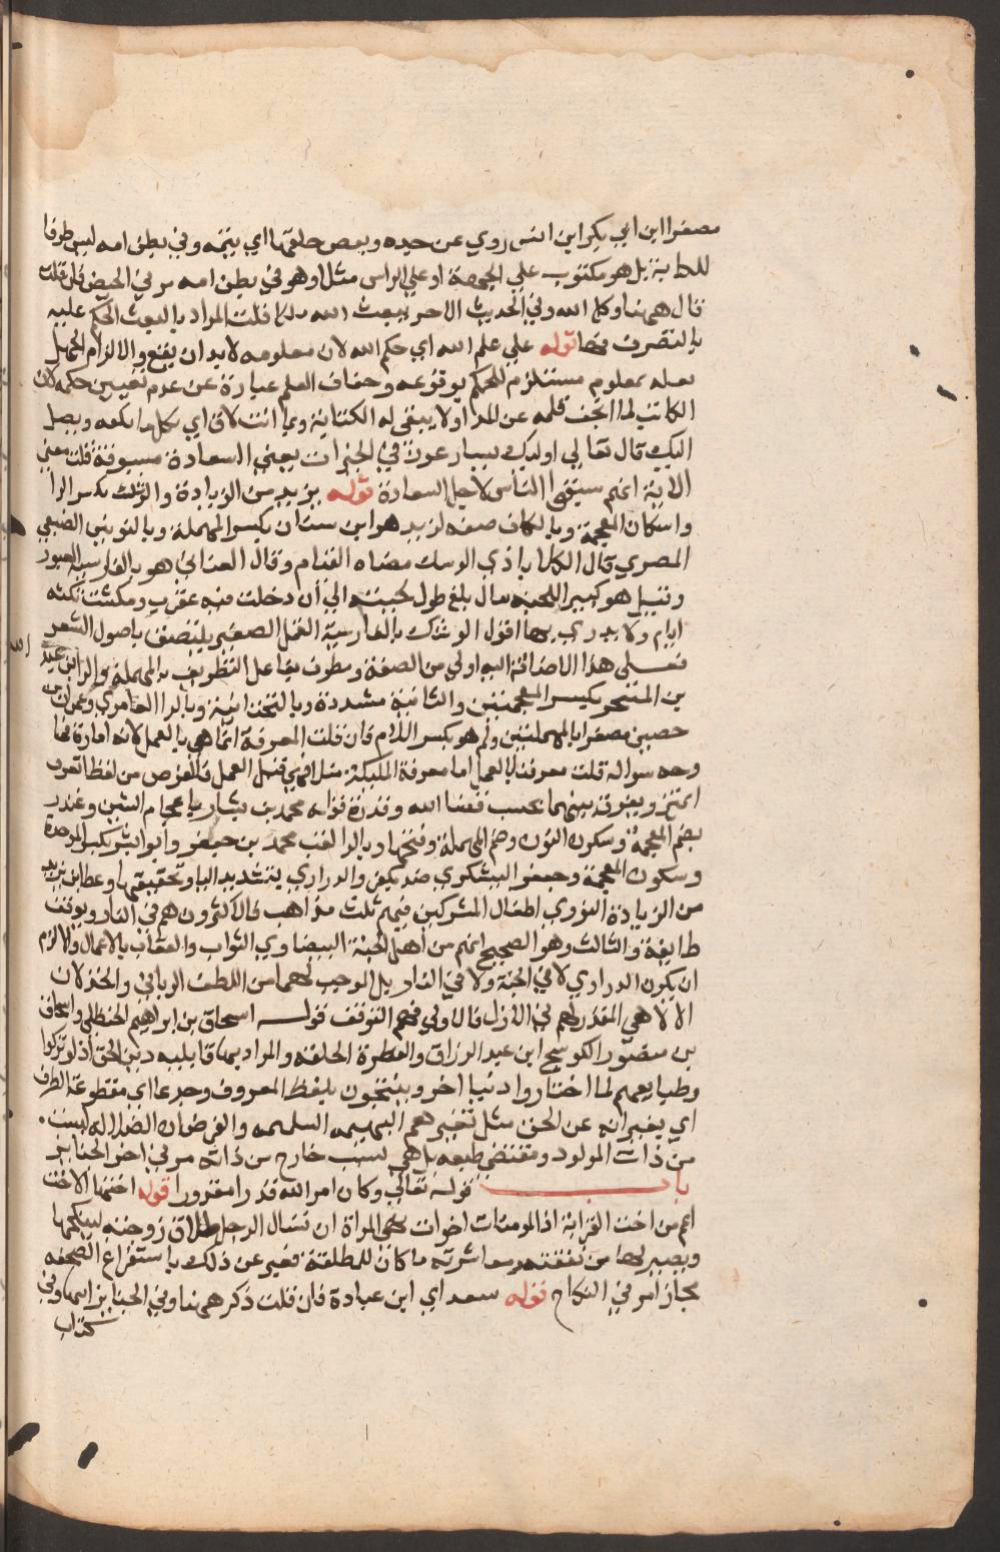 مصغرا ابن ابي بكر ابن انس روي عن جده وبعض حلقها اي يتمه وفي بطن امه ليس ظرفا
للكتابة بل هو مكتوب علي الجبهة او علي الراس مثلا وهو في بطن امه مر في الحيض فان قلت
قال ههنا وكل الله وفي الحديث الاخر يبعث الله ملكا قلت المراد بالبعث الحكم عليه
بالتصرف فيها قوله علي علم الله اي حكم الله لان معلومه لابد ان يقع والا لزم الجهل
فعلمه بمعلوم مستلزم للحكم بوقوعه وجفاف القلم عبارة عن عدم تغيير حكمه لان
الكاتب لما ان جف قلمه عن المداد لا يبقي له الكتابة وبما انت لاق اي بكل ما تلقاه ويصل
اليك قال تعالي اوليك يسارعون في الخيرات يعني السعادة مسبوقة قلت معني
الاية انهم سبقوا الناس لاجل السعادة قوله يزيد من الزيادة والرشك بكسر الرا
واسكان المعجمة وبالكاف صفه ليزيد هو ابن سنان بكسر المهملة وبالنونين الضبعي
البصري قال الكلاباذي الرشك معناه القسام وقال الغساني هو بالفارسية الغيور
وقيل هو كبير اللحية يقال بلغ طول لحيته الي أن دخلت فيه عقرب ومكثت ثلثة
ايام ولا يدري بها اقول الرشك بالفارسية القمل الصغير يلتصق باصول الشعر
فعلي هذا الاضافة اليه اولي من الصفة ومطرف بفاعل التطريف بالمهملة والرا ابن عبد
الله
بن الشخير بكسر المعجمتين والثانية مشددة وبالتحتانية وبالرا العامري وعمران بن
حصين مصغرا بالمهملتين ولم هو بكسر اللام فان قلت المعرفة انما هي بالعمل لانه امارة فما
وجه سواله قلت معرفتنا بالعمل اما معرفة الملايكة مثلا فهي قبل العمل فالغرض من لفظ اتعرف
اتميز ويفرق بينهما بحسب قضا الله وقدره قوله محمد بن بشار باعجام الشين وغندر
بضم المعجمة وسكون النون وضم المهملة وفتحها وبالرا لقب محمد بن جعفر وابو بشر بكسر الموحدة
وسكون المعجمة وجعفر اليشكري والدراري بتشديد اليا وتخفيفها وعطا ابن يزيد
من الزيادة النووي اطفال المشركين فيهم ثلث مذاهب فالاكثرون هم في النار وتوقف
طايفة والثالث وهو الصحيح انهم من أهل الجنة البيضاوي الثواب والعقاب لا بالاعمال والا لزم
ان يكون الدراري لا في الجنة ولا في النار بل الموجب لهما من اللطف الرباني والخذلان
الالاهي المقدر لهم في الازل فالاولي فيهم التوقف قوله اسحاق بن ابراهيم الحنظلي واسحاق
بن منصور الكوسج ابن عبد الرزاق والفطرة الخلقة والمراد بها قابلية دين الحق اذ لو تركوا
وطبايعهم لما اختاروا دنيا اخر وينتجون بلفظ المعروف وجدعا اي مقطوعة الطرف
اي يغيرانه عن الحق مثل تغييرهم البهيمة السليمه والغرض ان الضلالة ليست
من ذات المولود ومقتضي طبعه بل هي بسبب خارج من ذاته مر في اخر الجنايز
باب قوله تعالي وكان امر الله قدرا مقدورا قوله اختها الاخت
اعم من اخت القرابة اذ المومنات اخوات نهي المراة ان تسال الرجل طلاق زوجته لينكحها
ويصير لها من نفقته ومعاشرته ما كان للمطلقة فعبر عن ذلك باستفراغ الصحفه
مجازا مر في النكاح قوله سعد اي ابن عبادة فان قلت ذكر ههنا وفي الجنايز ابنا وفي
كتاب